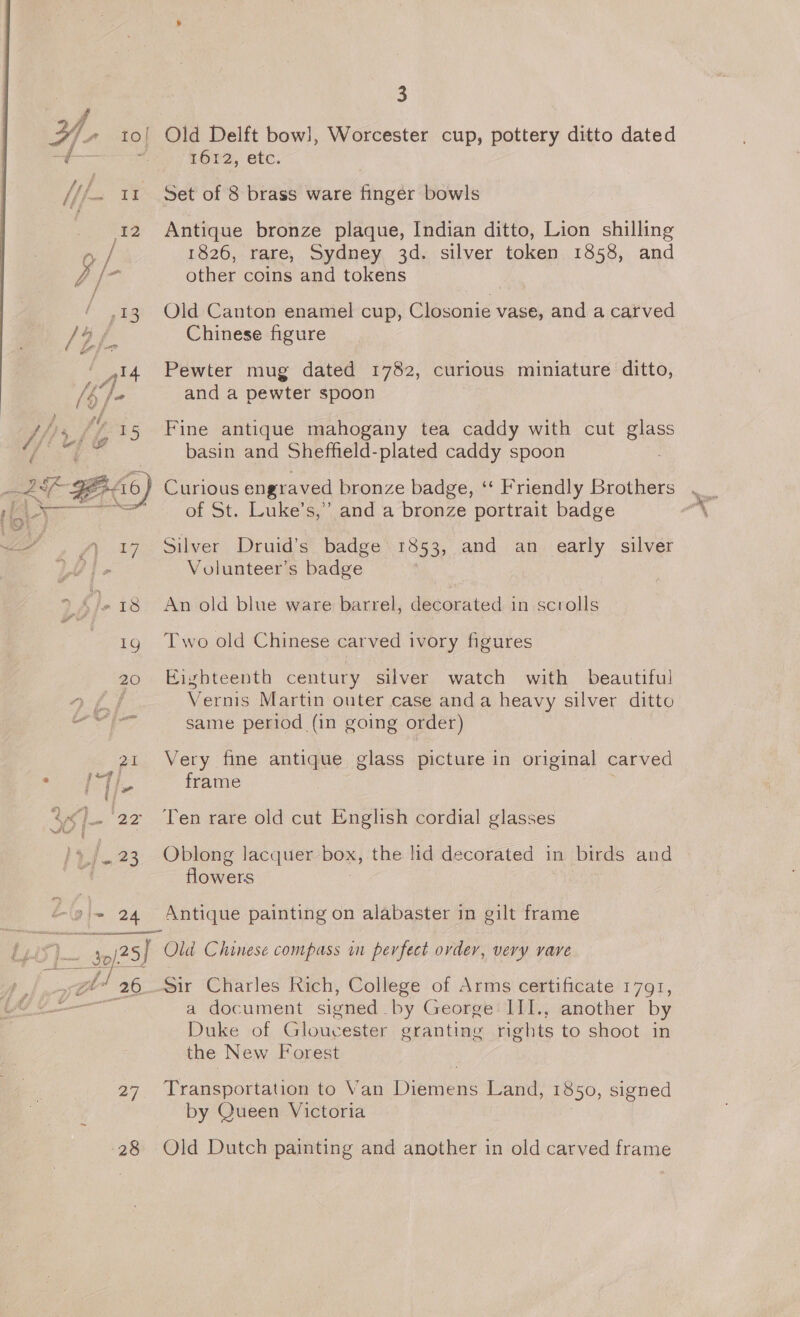 3
10 Old Delft bowl, Worcester cup, pottery ditto dated
1612, etc.
11 Set of 8 brass ware finger bowls
12 Antique bronze plaque, Indian ditto, Lion shilling
1826, rare, Sydney 3d. silver token 1858, and
other coins and tokens
13 Old Canton enamel cup, Closonie vase, and a carved
Chinese figure
14 Pewter mug dated 1782, curious miniature ditto,
and a pewter spoon
15 Fine antique mahogany tea caddy with cut glass
basin and Sheffield-plated caddy spoon
16 Curious engraved bronze badge, “ Friendly Brothers
of St. Luke’s,” and a bronze portrait badge
17 Silver Druid’s badge 1853, and an early silver
Volunteer’s badge
18 An old blue ware barrel, decorated in scrolls
19 Two old Chinese carved ivory figures
20 Eighteenth century silver watch with beautiful
Vernis Martin outer case and a heavy silver ditto
same period (in going order)
21 Very fine antique glass picture in original carved
frame
22 Ten rare old cut English cordial glasses
23 Oblong lacquer box, the lid decorated in birds and
flowers
24 Antique painting on alabaster in gilt frame
25 Old Chinese compass in perfect order, very rare
26 Sir Charles Rich, College of Arms certificate 1791,
a document signed by George III., another by
Duke of Gloucester granting rights to shoot in
the New Forest
27 Transportation to Van Diemens Land, 1850, signed
by Queen Victoria
28 Old Dutch painting and another in old carved frame